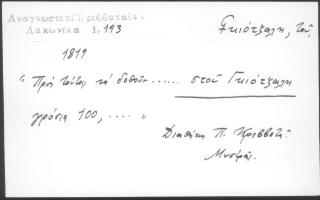 Αναγνωστοπ. Κρεββατάδες
Λακωνικά 1, 193
Γκιότζαλη, τοῦ,
1819
"Πρὸς τούτοις νὰ δοθοῦν ...... στοῦ Γκιότζαλη
γρόσια 100, .... "
Διαθήκη Π. Κρεββατᾶ
Μυστρᾶ.